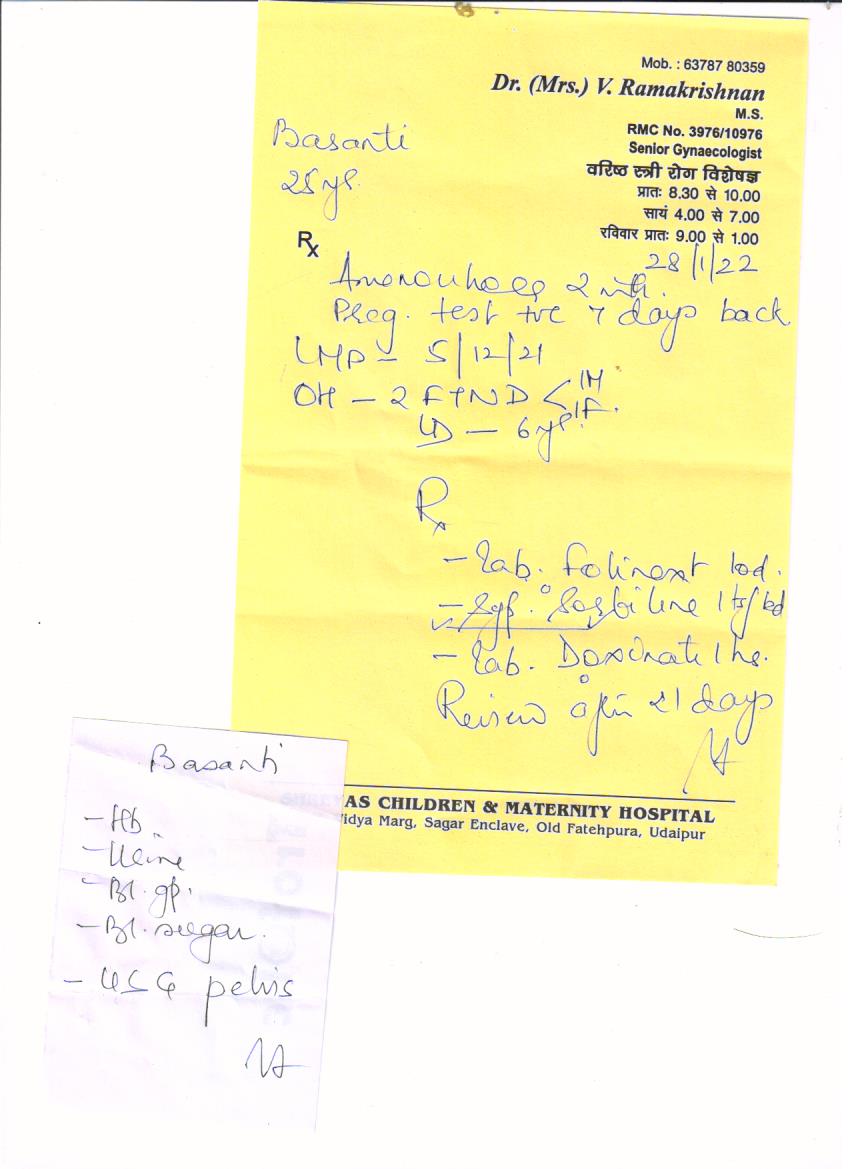 Mob. : 63787 80359
Dr. (Mrs.) V. Ramakrishnan
M.S.
RMC No. 3976/10976
Senior Gynaecologist
वरिष्ठ स्त्री रोग विशेषज्ञ
प्रातः 8.30 से 10.00
सायं 4.00 से 7.00
रविवार प्रातः 9.00 से 1.00
Basanti
28/1/22
Rx
2 mth.
Preg. test +ve 7 days back
LMP - 5/12/21
OH - 2 FTND < 1M
1F.
LD - 6 yr.
Rx
- Tab. Folinext 1 od.
- Syp. 1 tsf bd
- Tab. Doxinate 1 hs.
Review after 21 days
AS CHILDREN & MATERNITY HOSPITAL
idya Marg, Sagar Enclave, Old Fatehpura, Udaipur
Basanti
- Hb.
- Urine
- Bl. gp.
- Bl. sugar.
- USG pelvis